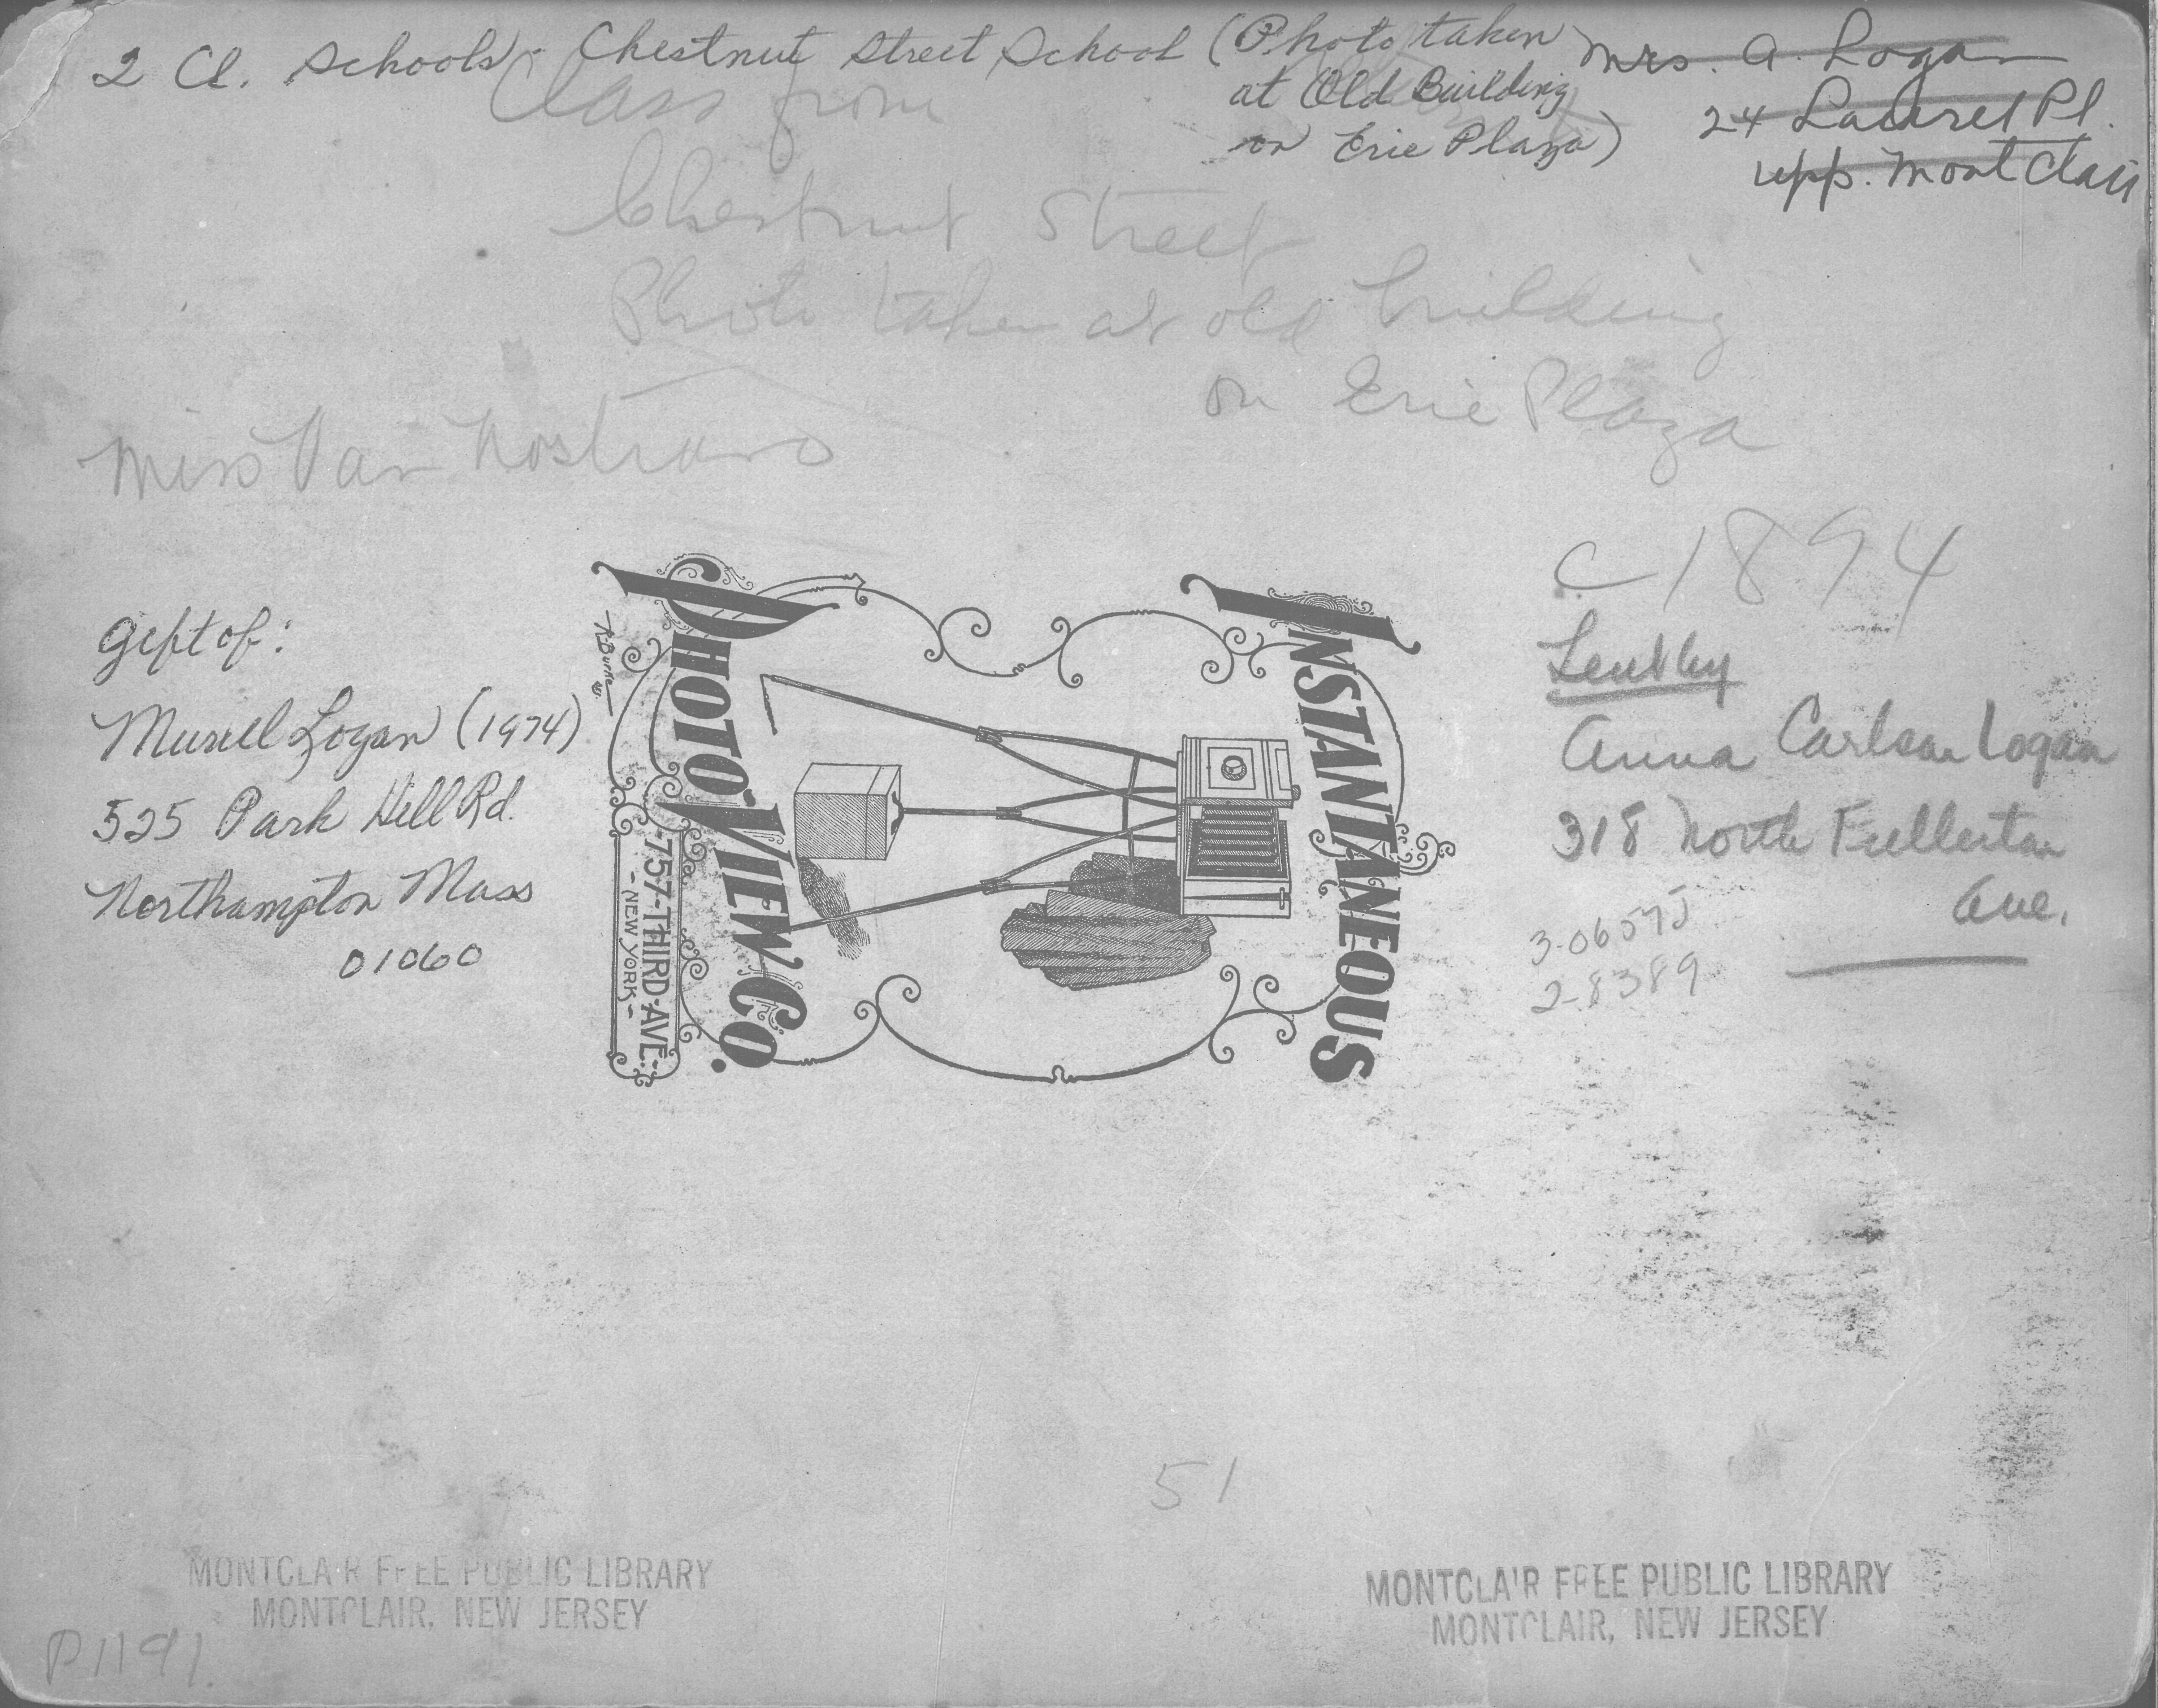 2 Cl. Schools - Chestnut Street School (Photo taken
at Old Building
on Erie Plaza)
Mrs. A. Logan
24 Laurel Pl.
Upp. Montclair
Class from
Chestnut Street
Photo taken at old building
on Erie Plaza
Miss Van Nostrand
c 1894
Gift of:
Muriel Logan (1974)
525 Park Hill Rd.
Northampton Mass
01060
INSTANTANEOUS
PHOTO-VIEW CO.
-757-THIRD-AVE-
-NEW YORK-
Lent by
Anna Carlson Logan
318 North Fullerton
Ave.
3-06575
2-8389
51
MONTCLAIR FREE PUBLIC LIBRARY
MONTCLAIR, NEW JERSEY
MONTCLAIR FREE PUBLIC LIBRARY
MONTCLAIR, NEW JERSEY
P1191